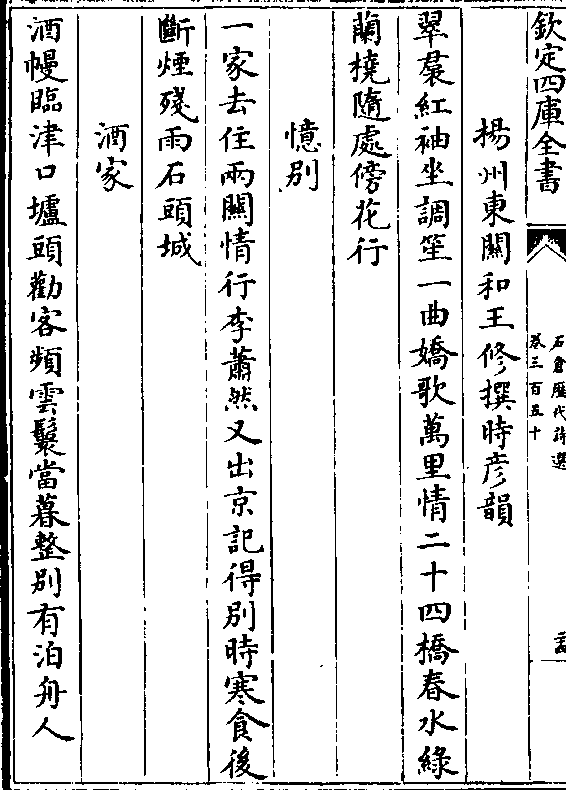 欽定四庫全書
石倉歷代詩選
卷三百五十
揚州東關和王修撰時彥韻
翠裠紅袖坐調笙一曲嬌歌萬里情二十四橋春水綠
蘭橈隨處傍花行
憶別
一家去住兩關情行李蕭然又出京記得別時寒食後
斷煙殘雨石頭城
酒家
酒幔臨津口壚頭勸客頻雲鬟當暮整別有泊舟人